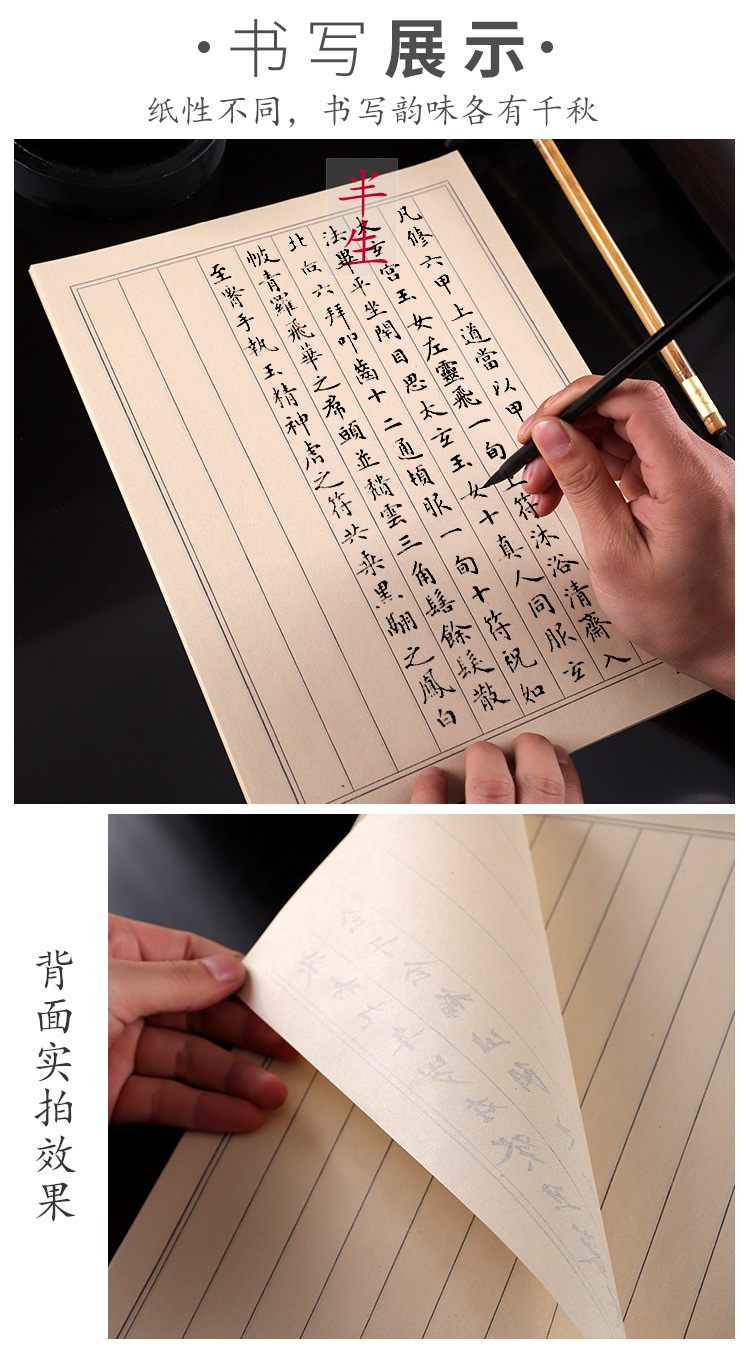 ·书写展示·
纸性不同，书写韵味各有千秋
半生
凡修六甲上道當以甲
上符沐浴清齋入
太玄宮玉女左靈飛一旬
十真人同服玄
法畢平坐閉目思太玄玉女
北向六拜叩齒十二通頓服一旬十符祝如
帔青羅飛華之帬頭並頹雲三角髻餘髮散
至腰手執玉精神虎之符共乘黑翮之鳳白
背面实拍效果